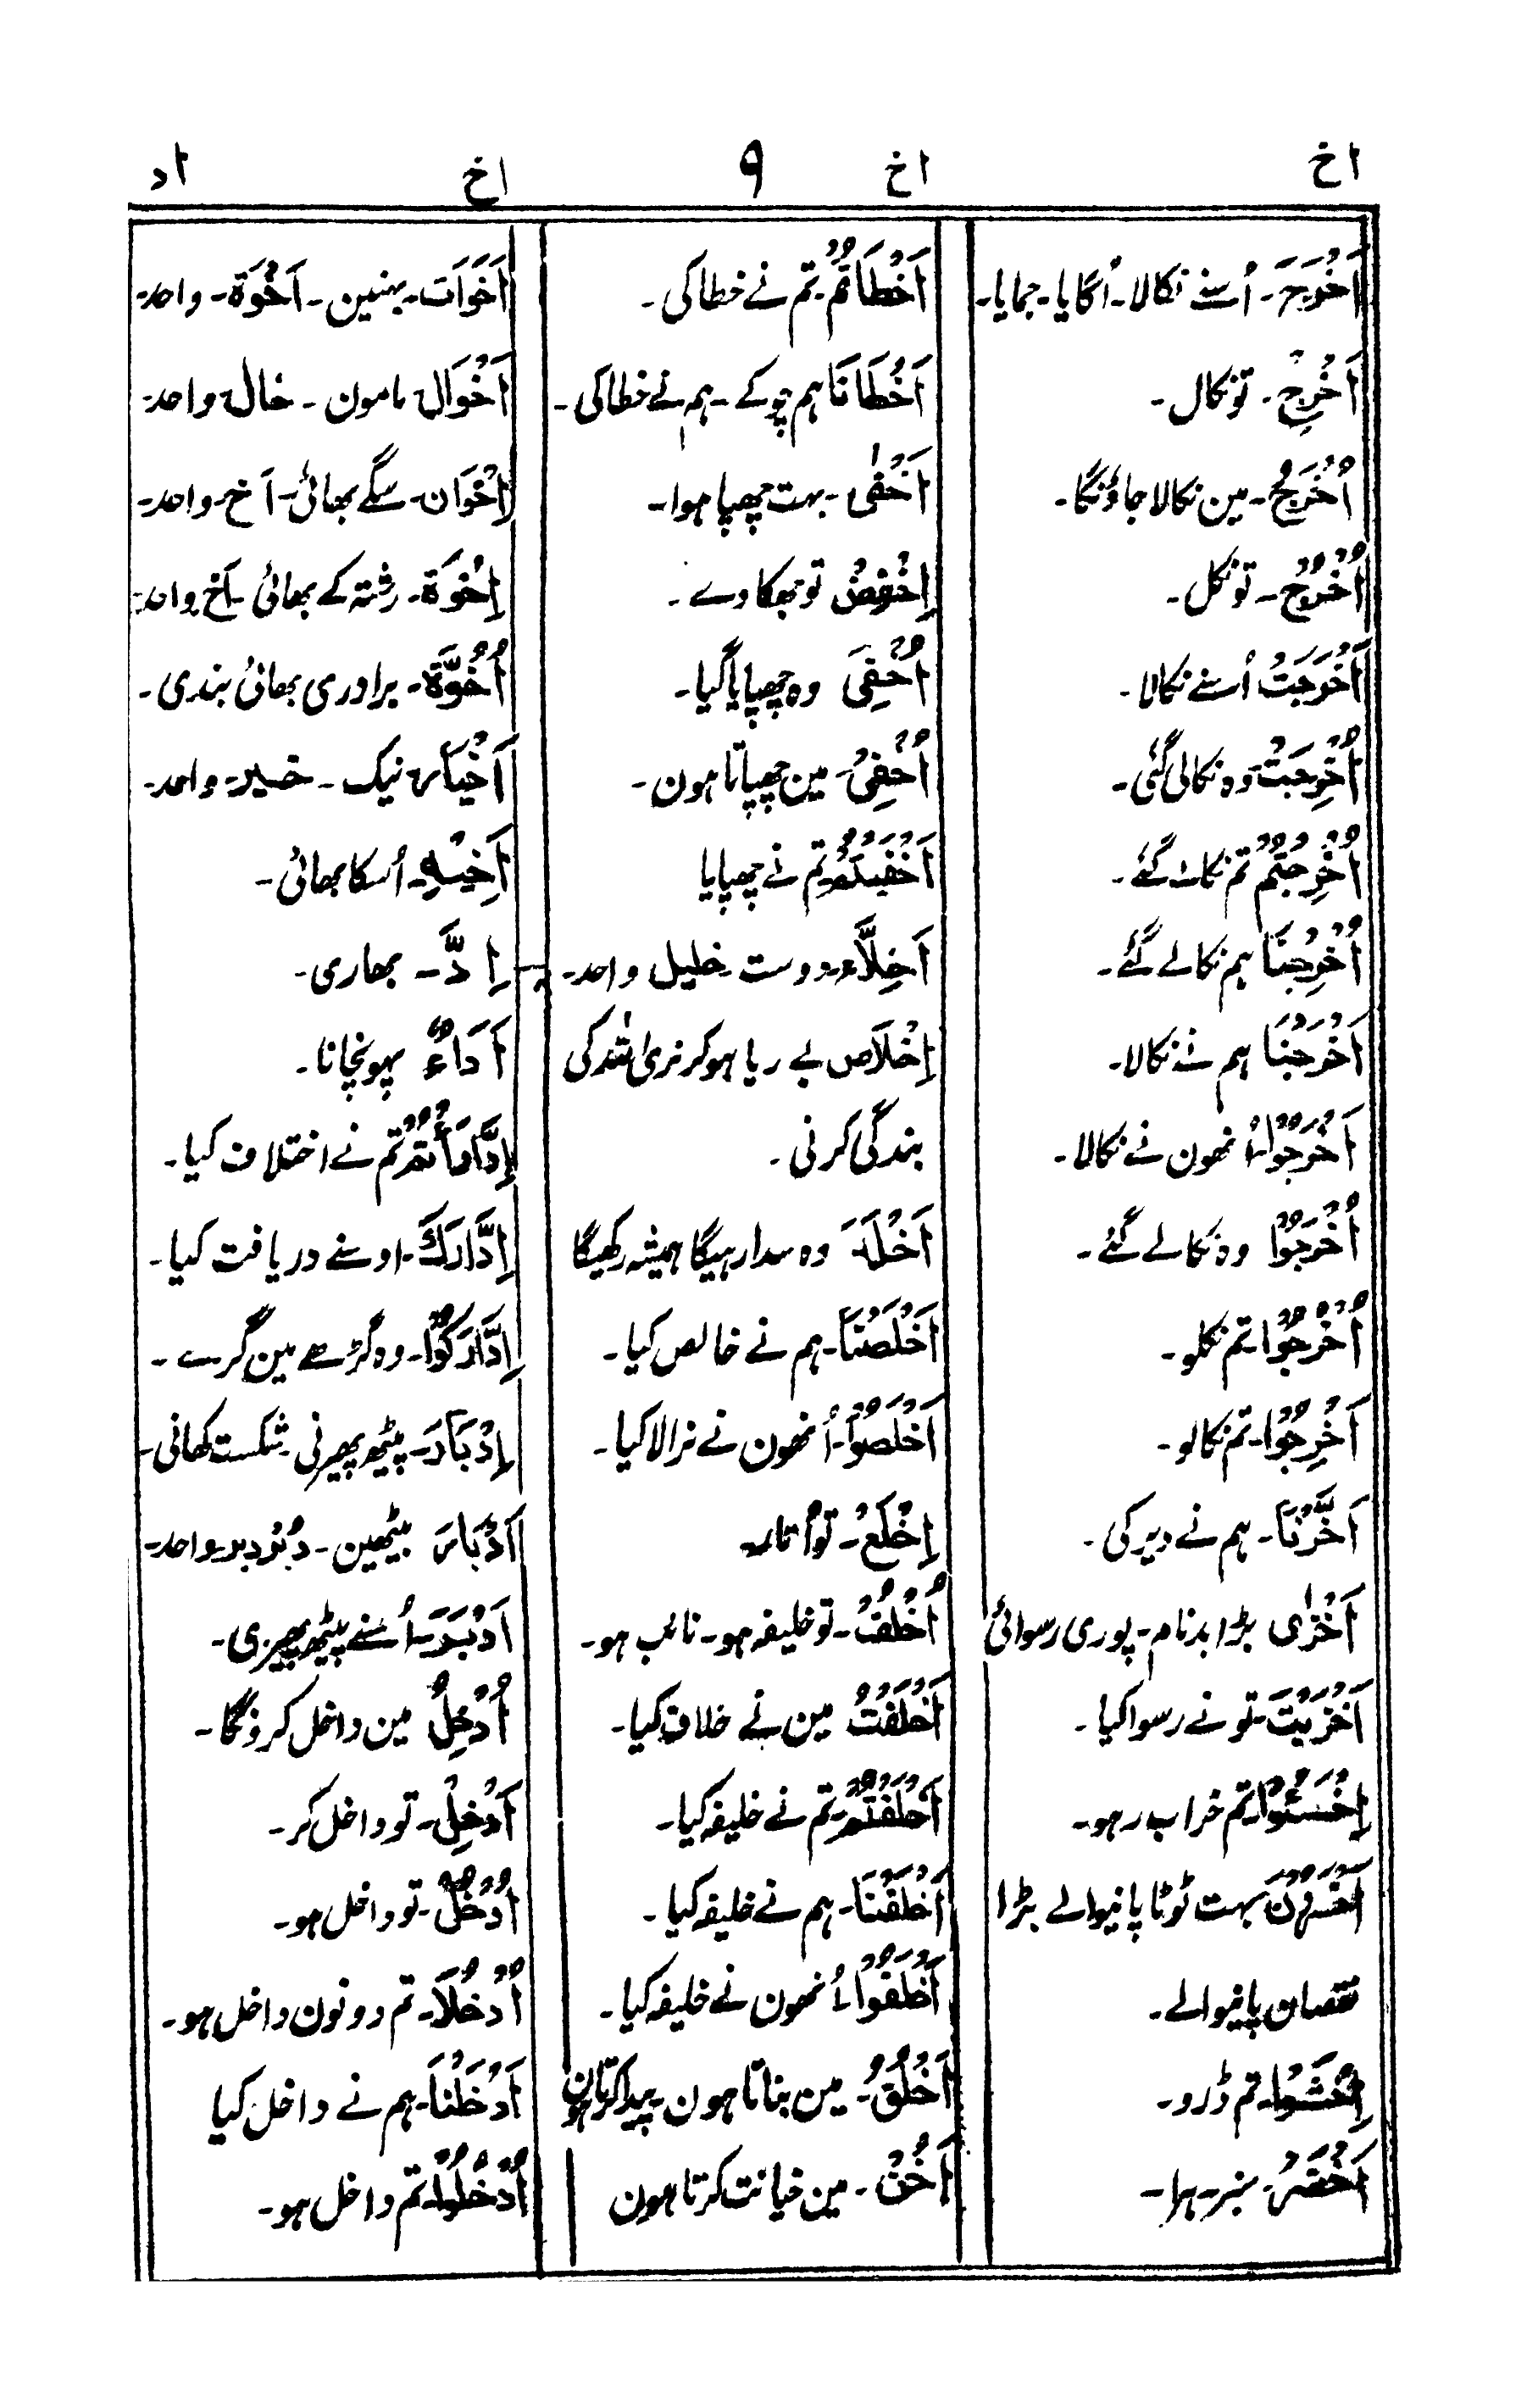 اخ
اخ
۹
اخ
اد
اَخْرَجَ۔ اُسنے نکالا۔ اُگایا۔ جمایا۔
اَخْرِجْ۔ تو نکال۔
اُخْرَجُ۔ مین نکالا جاؤنگا۔
اُخْرُجْ۔ تو نکل۔
اَخْرَجَتْ اُسنے نکالا۔
اُخْرِجَتْ وہ نکالی گئی۔
اُخْرِجْتُمْ تم نکالے گئے۔
اُخْرِجْنَا ہم نکالے گئے۔
اَخْرَجْنَا ہم نے نکالا۔
اَخْرَجُوْا۔ اُنھون نے نکالا۔
اُخْرِجُوْا وہ نکالے گئے۔
اُخْرُجُوْا۔ تم نکلو۔
اَخْرِجُوْا۔ تم نکالو۔
اَخَّرْنَا۔ ہم نے دیر کی۔
اَخْزٰی بڑا بدنام۔ پوری رسوائی
اَخْزَیْتَ۔ تو نے رسوا کیا۔
اِخْسَئُوْا۔ تم خراب رہو۔
اَخْسَرُوْنَ بہت ٹوٹا پانیوالے بڑا
نقصان پانیوالے۔
اِخْشَوْا۔ تم ڈرو۔
اَخْضَرُ۔ سبز۔ ہرا۔
اَخْطَاتُمْ۔ تم نے خطا کی۔
اَخْطَانَا ہم چوکے۔ ہم نے خطا کی۔
اَخْفٰی۔ بہت چھپا ہوا۔
اِخْفِضْ تو جھکا دے۔
اُخْفِیَ وہ چھپایا گیا۔
اُخْفِیْ۔ مین چھپاتا ہون۔
اَخْفَیْتُمْ۔ تم نے چھپایا
اَخِلَّاء۔ دوست۔ خلیل واحد۔
اِخْلَاص بے ریا ہوکر نری اللہ کی
بندگی کرنی۔
اَخْلَدَ وہ سدا رہیگا ہمیشہ رکھیگا
اَخْلَصْنَا۔ ہم نے خالص کیا۔
اَخْلَصُوْا۔ اُنھون نے نرالا کیا۔
اِخْلَعْ۔ تو اُتار۔
اُخْلُفْ۔ تو خلیفہ ہو۔ نائب ہو۔
اَخْلَفْتُ مین نے خلاف کیا۔
اَخْلَفْتُمْ۔ تم نے خلیفہ کیا۔
اَخْلَفْنَا۔ ہم نے خلیفہ کیا۔
اَخْلَفُوْا۔ اُنھون نے خلیفہ کیا۔
اَخْلُقُ۔ مین بناتا ہون۔ پیدا کرتا ہون
اَخُنْ۔ مین خیانت کرتا ہون
اَخَوَات۔ بہنین۔ اَخْوَة۔ واحد۔
اَخْوَال۔ مامون۔ خال۔ واحد۔
اِخْوَان۔ سگے بھائی۔ اَخ۔ واحد۔
اِخْوَة۔ رشتہ کے بھائی۔ اَخ واحد۔
اُخُوَّة۔ برادری بھائی بندی۔
اَخْیَار۔ نیک۔ خیر۔ واحد۔
اَخِیْهِ۔ اُسکا بھائی۔
اِدًّ۔ بھاری۔
اَدَاءٌ پہونچانا۔
اِدَّارَأْتُمْ تم نے اختلاف کیا۔
اِدَّارَكَ۔ اوسنے دریافت کیا۔
اِدَّارَكُوْا۔ وہ گڑھے مین گرے۔
اِدْبَارَ۔ پیٹھ پھیرنی۔ شکست کھانی۔
اَدْبَارَ پیٹھین۔ دُبُر دبر۔ واحد۔
اَدْبَرَ۔ اُسنے پیٹھ پھیری۔
اُدْخِلُ مین داخل کرونگا۔
اَدْخِلْ۔ تو داخل کر۔
اُدْخُلْ۔ تو داخل ہو۔
اُدْخُلَا۔ تم دونون داخل ہو۔
اَدْخَلْنَا۔ ہم نے داخل کیا
اُدْخُلُوْا۔ تم داخل ہو۔